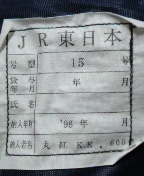 JR東日本
号型 15 号
貸与年月 年 月
氏名
納入年月 '98年 月
納入者名 丸紅 K.K. 600